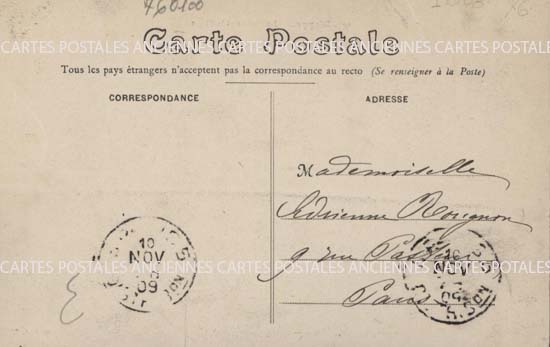 460100
Carte Postale
Tous les pays étrangers n'acceptent pas la correspondance au recto (Se renseigner à la Poste)
CARTES POSTALES ANCIENNES CARTES POSTALES ANCIENNES CARTES POSTALES ANCIENNES
CORRESPONDANCE
ADRESSE
Mademoiselle
Adrienne Rougnon
9 rue
Paris
10
NOV
09
CARTES POSTALES ANCIENNES CARTES POSTALES ANCIENNES CARTES POSTALES ANCIENNES